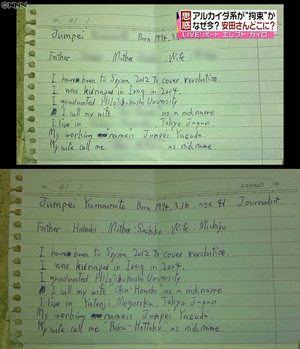 NNN
アルカイダ系が"拘束"か
なぜ今?安田さんどこに?
LIVEリポート エジプト・カイロ
Jumpei Born 1974.3.16
Father Mother Wife
I have been to Syria 2012 to cover revolution.
I was kidnaped in Iraq in 2004.
I graduated Hitotsubashi University
I call my wife as a nickname.
I live in Tokyo Japan
My working name is Jumpei Yasuda.
My wife call me as nickname
Jumpei Yamamoto Born 1974.3.16 age 41 Journalist
Father Hideaki Mother Sachiko Wife Michiyo
I have been to Syria 2012 to cover revolution.
I was kidnaped in Iraq in 2004.
I graduated Hitotsubashi University
I call my wife Oku-Houchi as a nickname
I live in Meguroku, Tokyo Japan
My working name is Jumpei Yasuda.
My wife call me as nickname